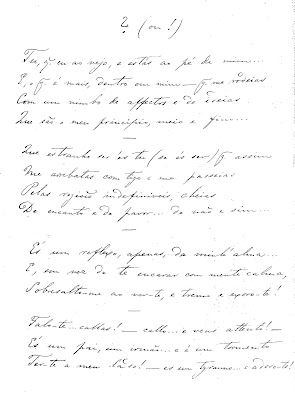 ? (ou !)
Tu, q̃ eu ao vejo, e estás ao pé de mim...
E, o q̃ é mais, dentro em mim — q̃ me rodeias
Com um nimbo de affectos e de ideias
Que são o meu principio, meio e fim...
Que estranho ser és tu (se és ser) q̃ assim
Me arrebatas comtigo e me passeias
Pelas regiões indefiniveis, cheias
De encanto e de pavor... de não e sim...
És um reflexo, apenas, da minh'alma...
E, em vez de te encarar com mente calma,
Sobresalto-me ao ver-te, e tremo e exoro-te!
Falo-te... callas! — callo... e vens attento! —
És um pai, um irmão... e é um tormento
Ter-te a meu lado! — és um tyranno... e adoro-te!